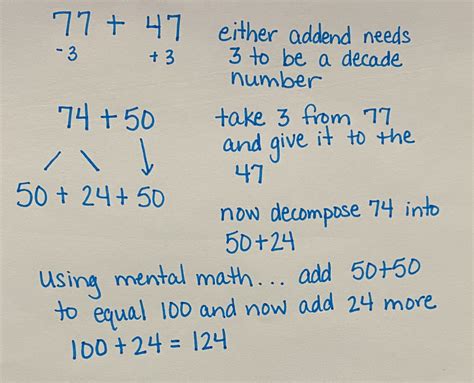 77 + 47
-3 +3
either addend needs
3 to be a decade
number
74 + 50
take 3 from 77
and give it to the
47
50 + 24 + 50
now decompose 74 into
50+24
Using mental math... add 50+50
to equal 100 and now add 24 more
100 + 24 = 124